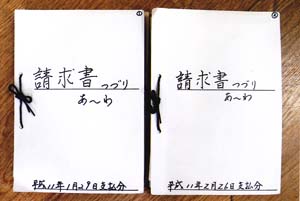 ①
請求書つづり
あ〜わ
平成11年1月29日支払分
②
請求書つづり
あ〜わ
平成11年2月26日支払分